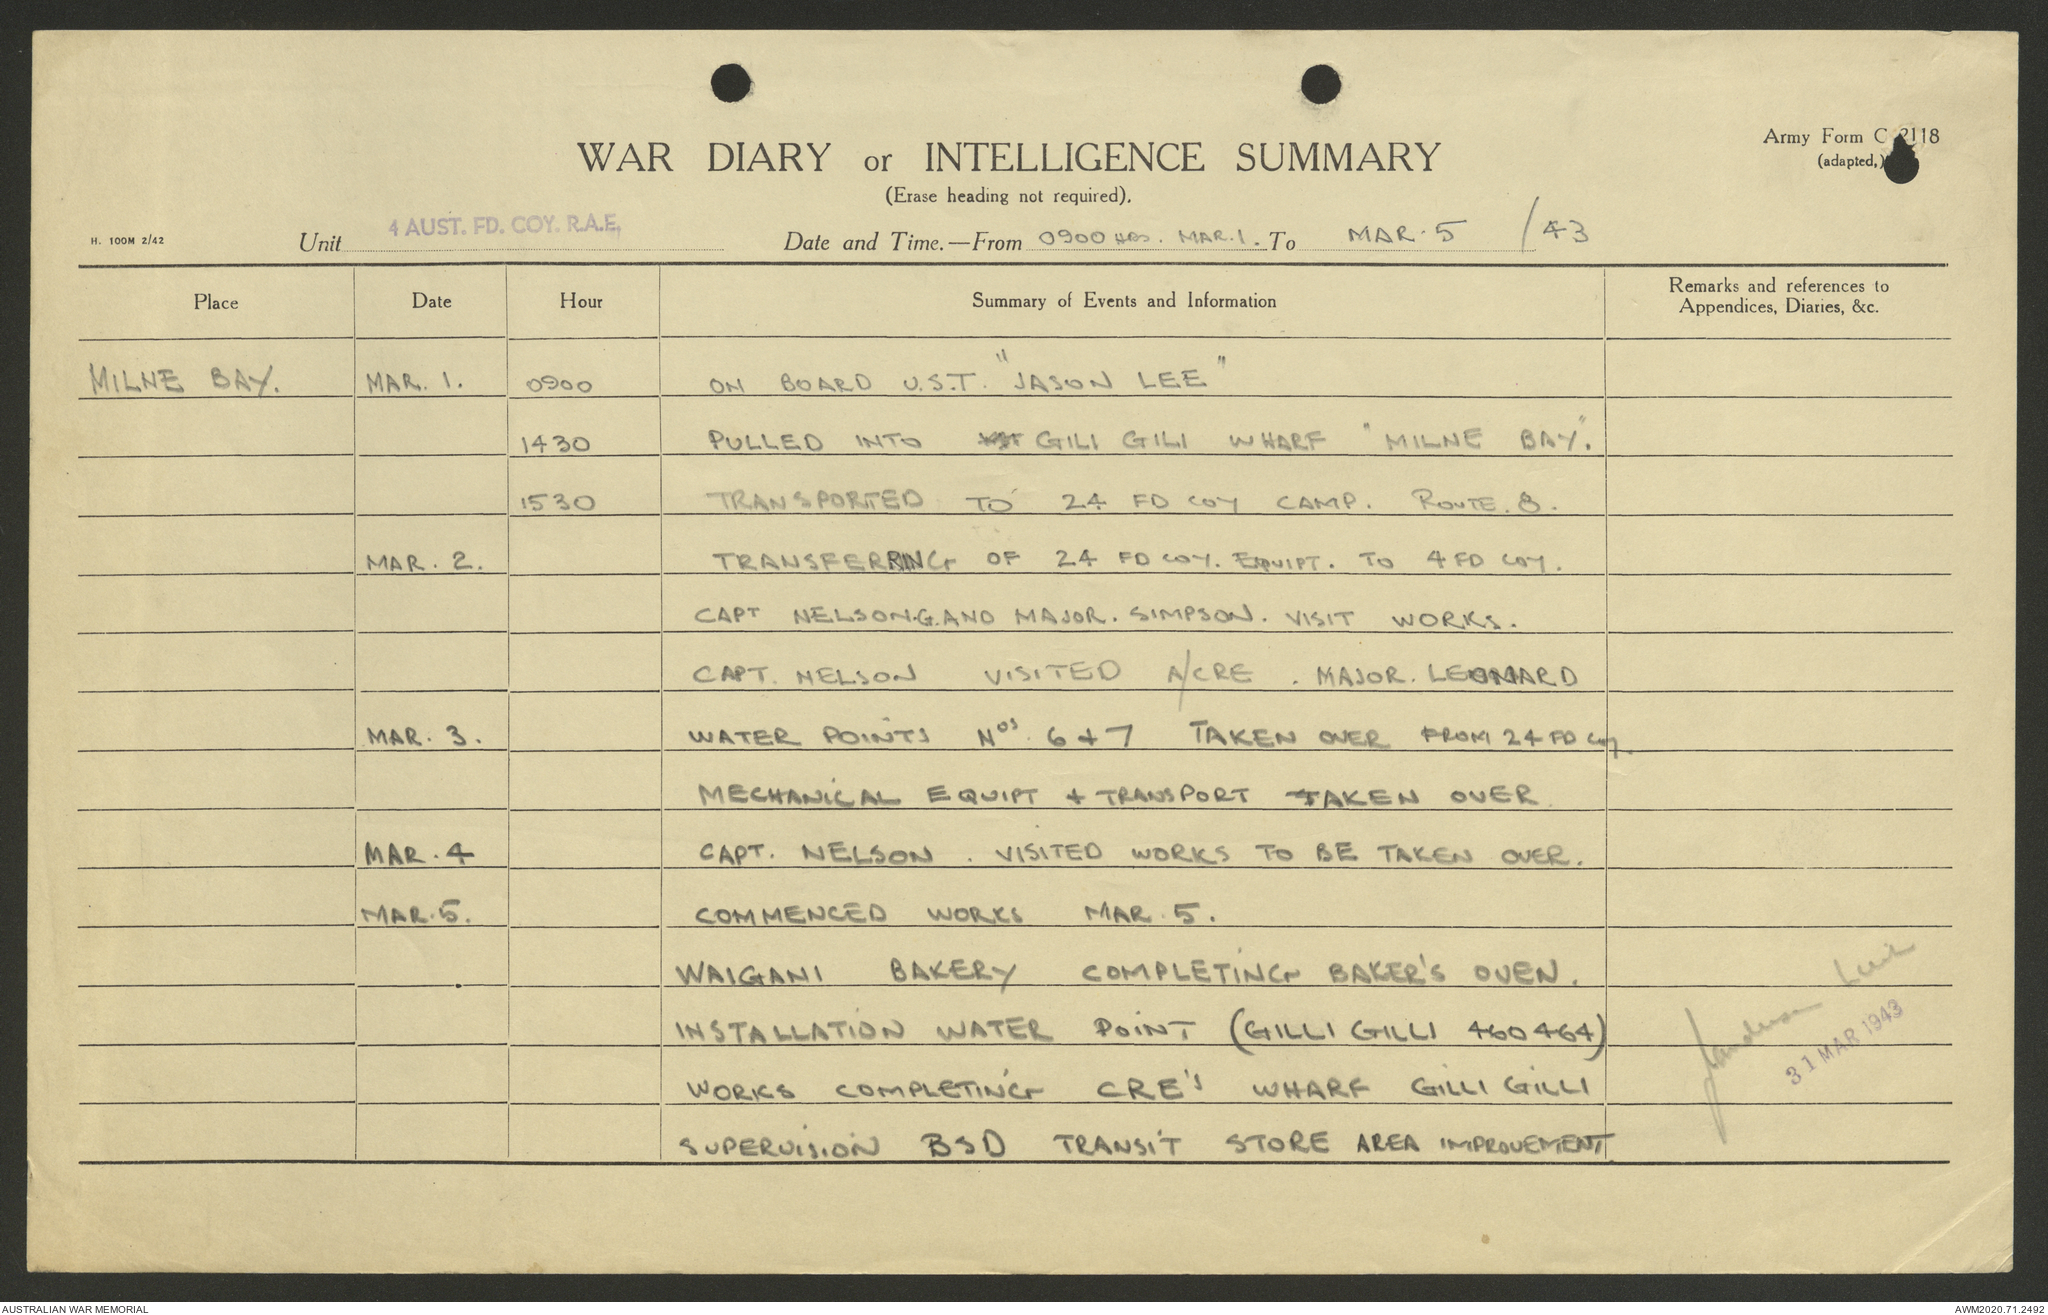 Army Form C 2118
(adapted,)
WAR DIARY or INTELLIGENCE SUMMARY
(Erase heading not required).
H. 100M 2/42
Unit 4 AUST. FD. COY. R.A.E. Date and Time.—From 0900 HRS. MAR. 1. To MAR. 5 /43
Place Date Hour Summary of Events and Information Remarks and references to
Appendices, Diaries, &c.
MILNE BAY. MAR. 1. 0900 ON BOARD U.S.T. "JASON LEE"
1430 PULLED INTO GILI GILI WHARF "MILNE BAY".
1530 TRANSPORTED TO 24 FD COY CAMP. ROUTE. 8.
MAR. 2. TRANSFERRING OF 24 FD COY. EQUIPT. TO 4 FD COY.
CAPT NELSON.G. AND MAJOR. SIMPSON. VISIT WORKS.
CAPT. NELSON VISITED A/CRE . MAJOR. LEONARD
MAR. 3. WATER POINTS Nos. 6 + 7 TAKEN OVER FROM 24 FD COY.
MECHANICAL EQUIPT + TRANSPORT TAKEN OVER
MAR. 4 CAPT. NELSON . VISITED WORKS TO BE TAKEN OVER.
MAR. 5. COMMENCED WORKS MAR. 5.
WAIGANI BAKERY COMPLETING BAKER'S OVEN.
INSTALLATION WATER POINT (GILLI GILLI 460464)
WORKS COMPLETING CRE's WHARF GILLI GILLI
SUPERVISION BSD TRANSIT STORE AREA IMPROVEMENT.
31 MAR 1943
AUSTRALIAN WAR MEMORIAL
AWM2020.71.2492